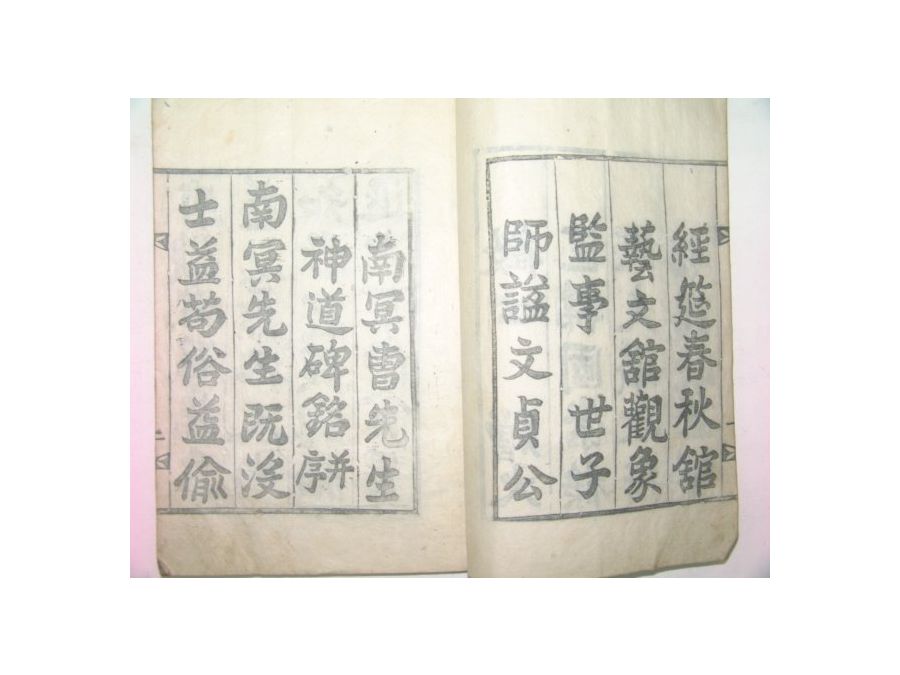 經筵春秋舘
藝文舘觀象
監事 世子
師謚文貞公
南冥曺先生
神道碑銘幷序
南冥先生旣沒
士益苟俗益偸